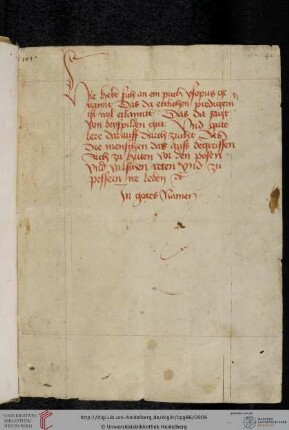 Hie hebt sich an ein puch ysopus ge
nannt Das da etlichen predigern
ist wol erkannt Das da sagt
von beyspilen gut Und gute
lere darauß durch zucht Das
die menschen das auß begreiffen
Sich zu hüten vor den posen
Und valschen reten Und zu
pessern ire leben etc
In gotes Namen
UNIVERSITÄTS-
BIBLIOTHEK
HEIDELBERG
http://digi.ub.uni-heidelberg.de/diglit/cpg86/0009
© Universitätsbibliothek Heidelberg